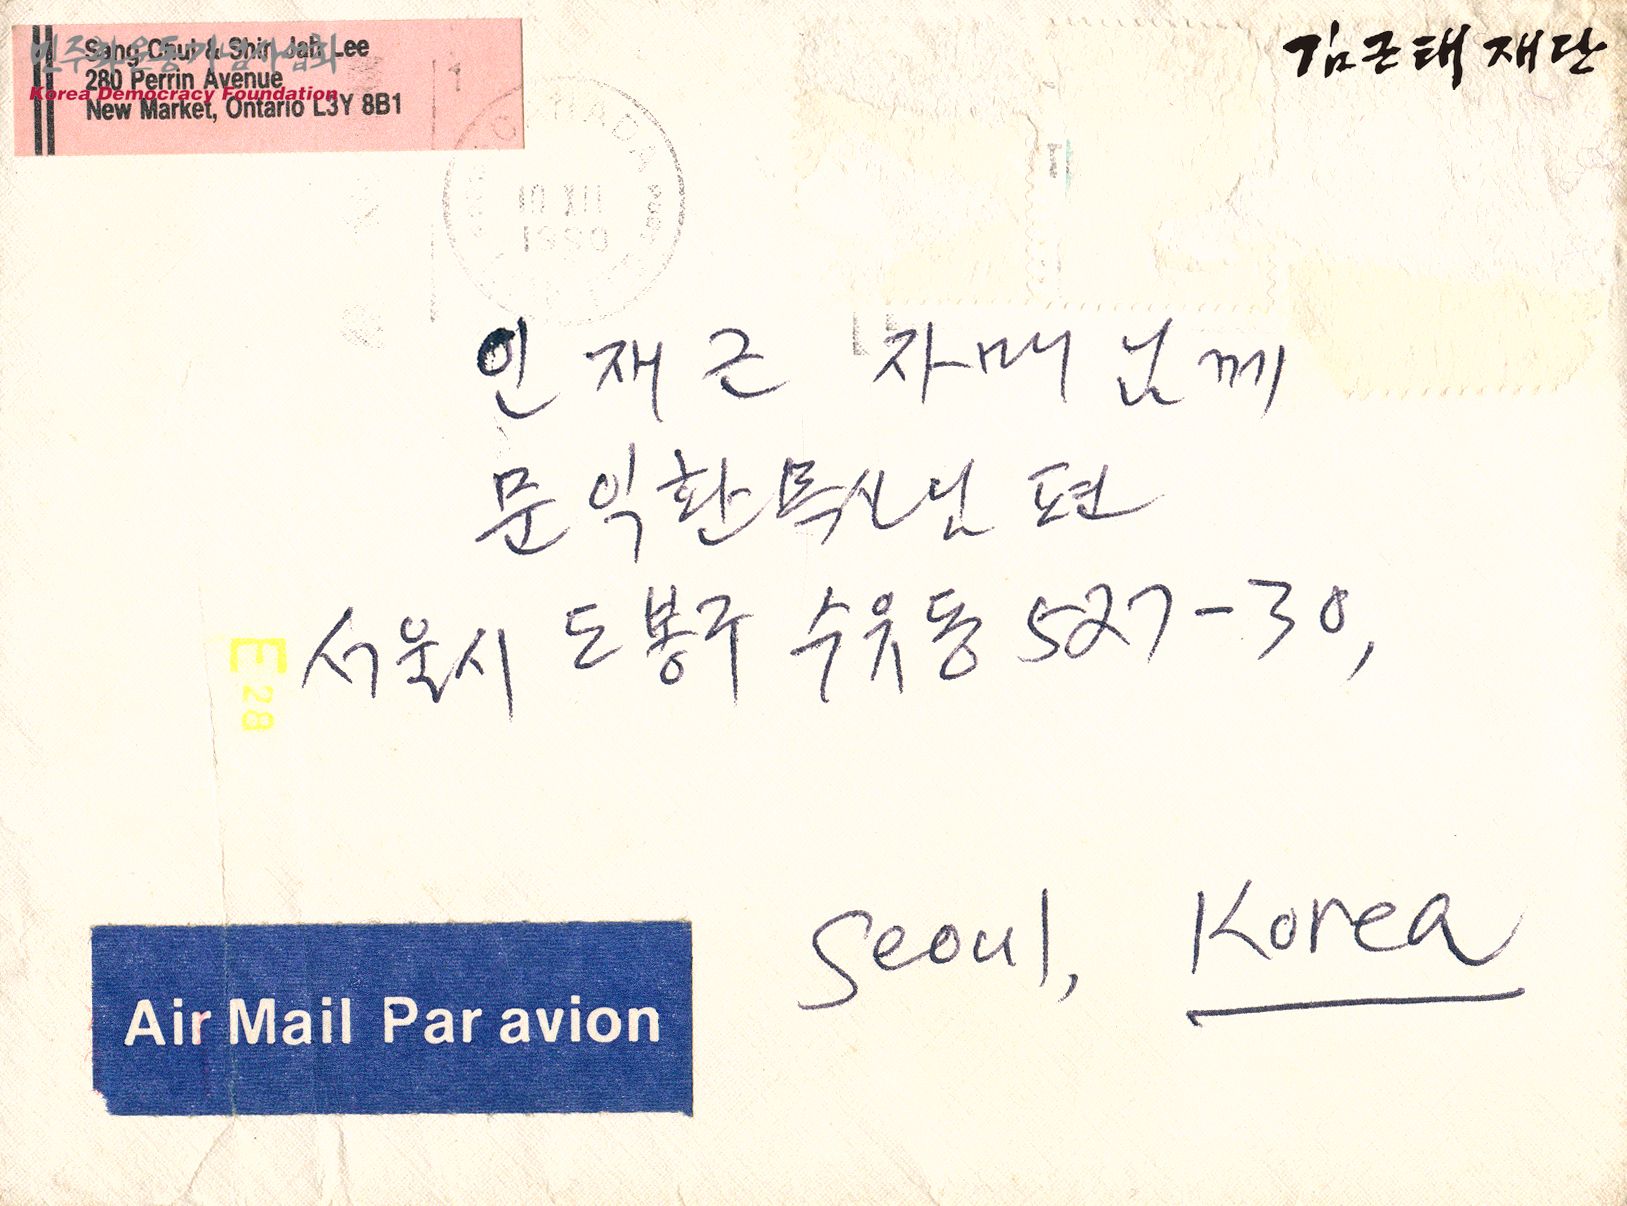 Sang Chul & Shin Jah Lee
280 Perrin Avenue
New Market, Ontario L3Y 8B1
민주화운동기념사업회
Korea Democracy Foundation
김근태재단
CANADA
10 XII
1990
인재근 자매님께
문익환목사님편
서울시 도봉구 수유동 527-30,
E28
Seoul, Korea
Air Mail Par avion